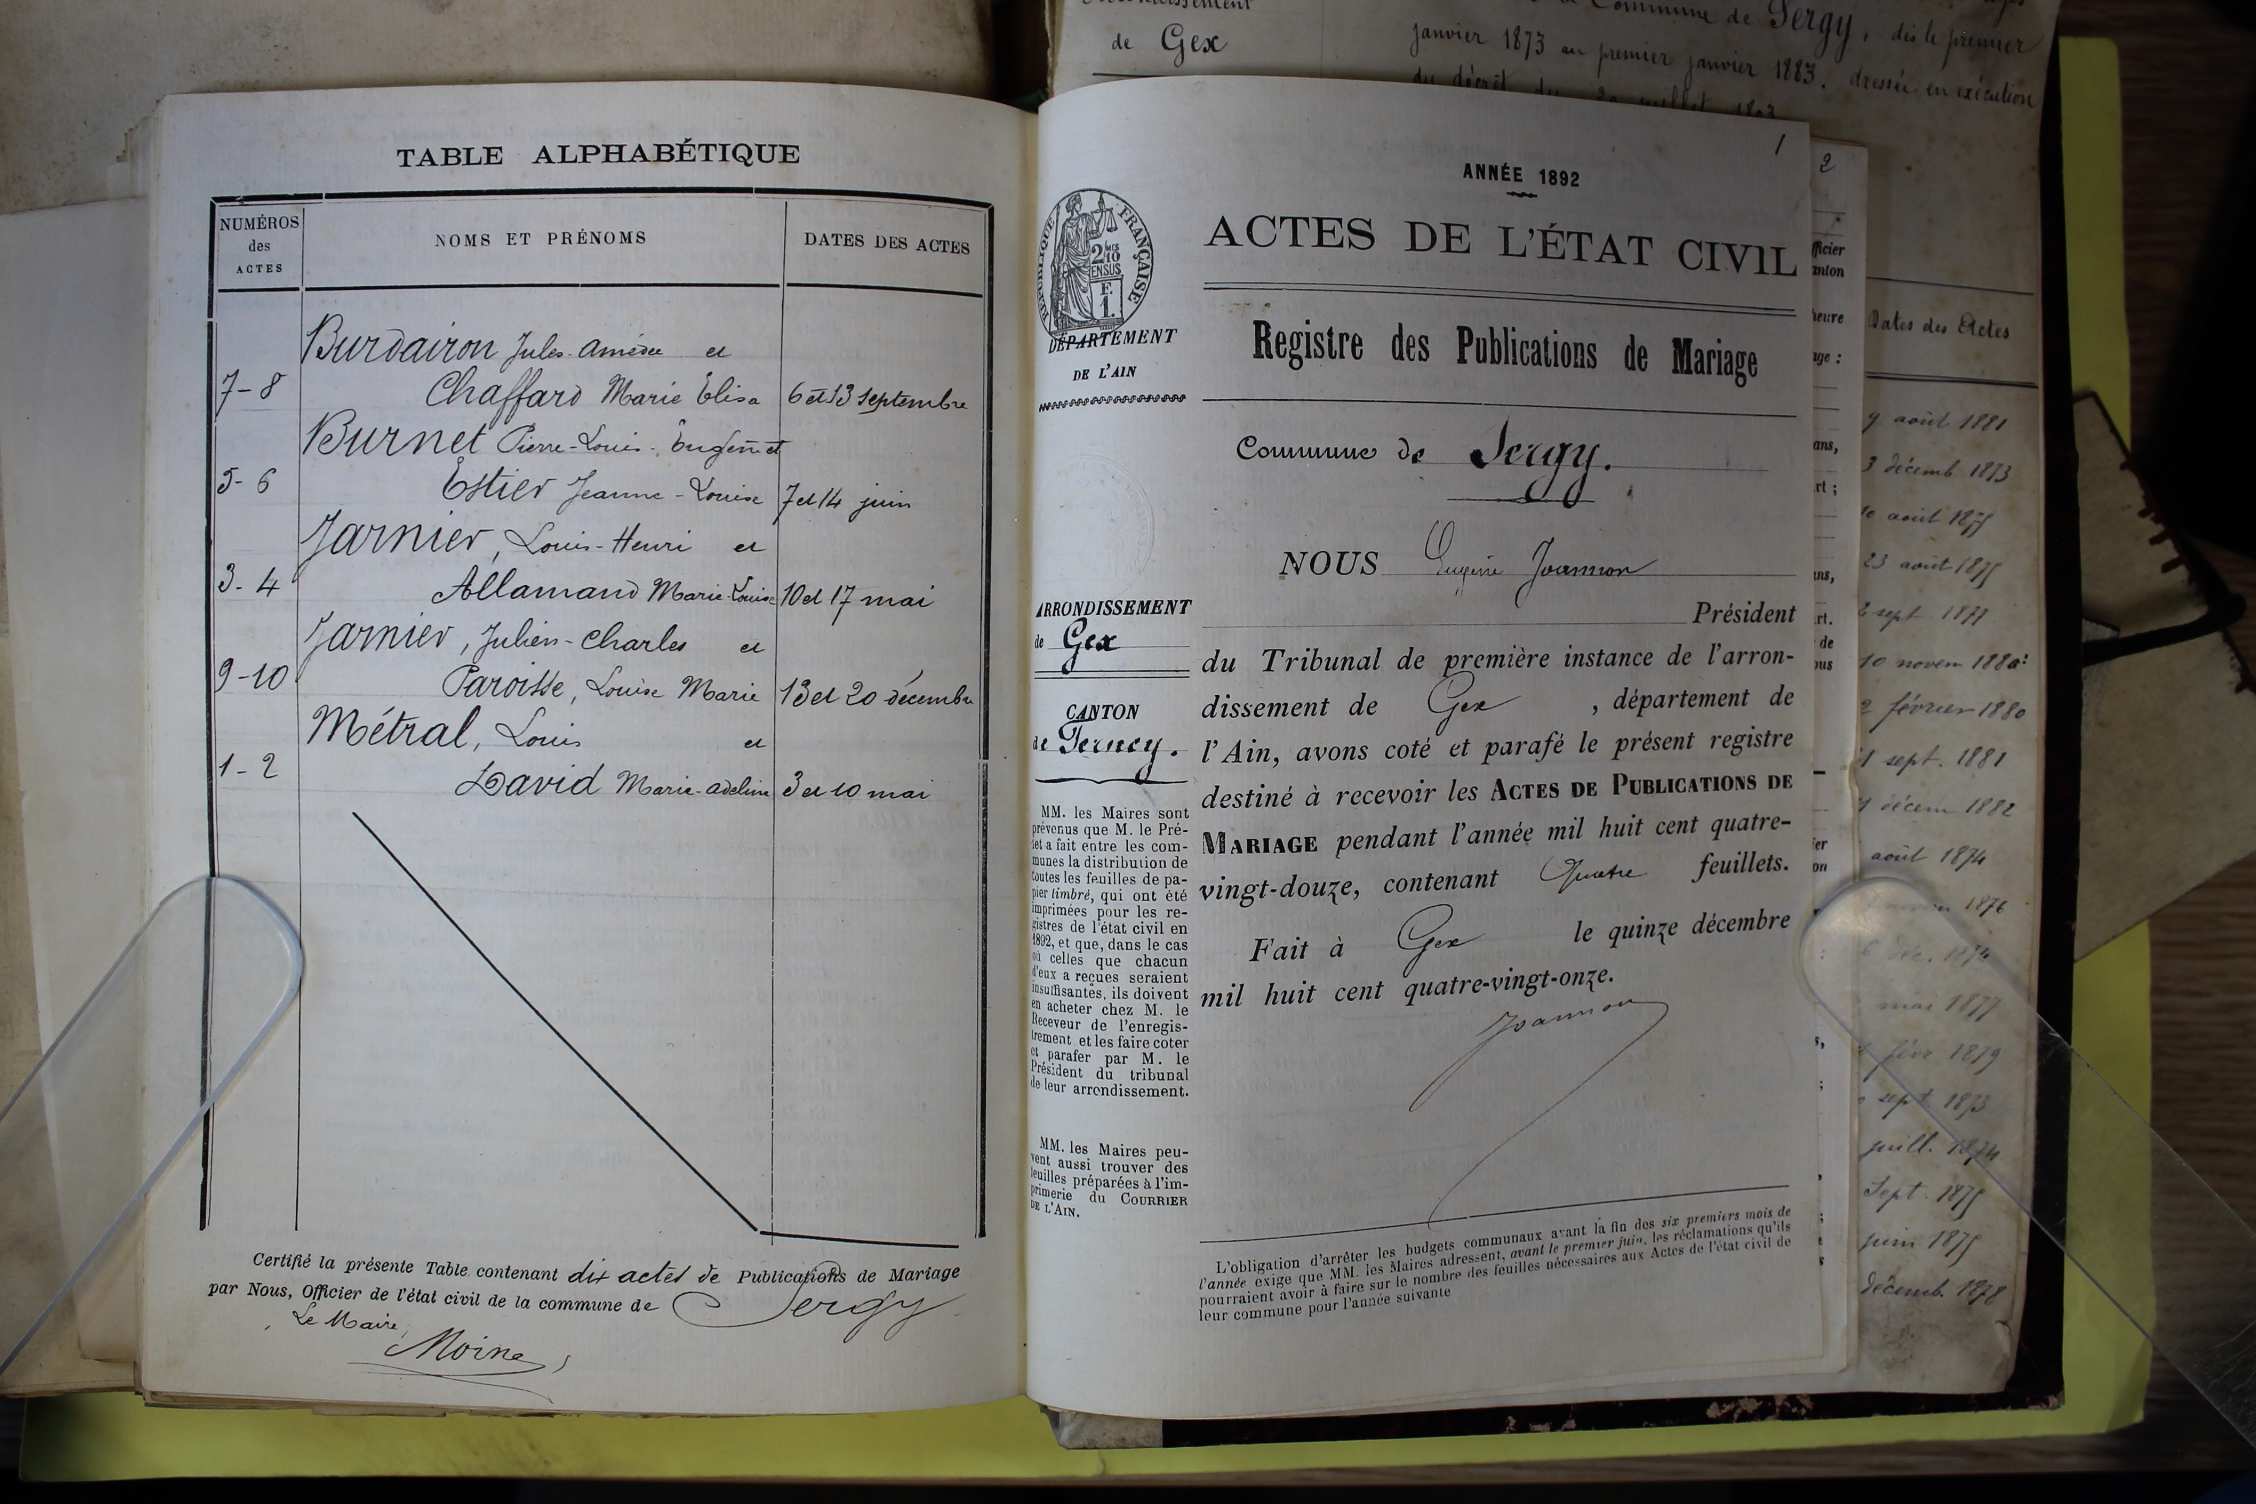 TABLE ALPHABÉTIQUE
NUMÉROS
des
ACTES
NOMS ET PRÉNOMS
DATES DES ACTES
Burdairon Jules-Amédée et
7-8 Chaffard Marie Elisa 6 et 13 septembre
Burnet Pierre-Louis-Eugène et
5-6 Estier Jeanne-Louise 7 et 14 juin
Jarnier, Louis-Henri et
3-4 Allamand Marie-Louise 10 et 17 mai
Jarnier, Julien-Charles et
9-10 Paroisse, Louise Marie 13 et 20 décembre
Métral, Louis et
1-2 David Marie-Adeline 3 et 10 mai
Certifié la présente Table contenant dix actes de Publications de Mariage
par Nous, Officier de l'état civil de la commune de Sergy
Le Maire,
Moine
1
ANNÉE 1892
ACTES DE L'ÉTAT CIVIL
Registre des Publications de Mariage
RÉPUBLIQUE FRANÇAISE
2/10
EN SUS
F.
1.
DÉPARTEMENT
DE L'AIN
Commune de Sergy.
NOUS Eugène Joannon
Président
du Tribunal de première instance de l'arron-
dissement de Gex, département de
l'Ain, avons coté et parafé le présent registre
destiné à recevoir les ACTES DE PUBLICATIONS DE
MARIAGE pendant l'année mil huit cent quatre-
vingt-douze, contenant Quatre feuillets.
Fait à Gex le quinze décembre
mil huit cent quatre-vingt-onze.
Joannon
ARRONDISSEMENT
de Gex
CANTON
de Ferney.
MM. les Maires sont
prévenus que M. le Pré-
fet a fait entre les com-
munes la distribution de
toutes les feuilles de pa-
pier timbré, qui ont été
imprimées pour les re-
gistres de l'état civil en
1892, et que, dans le cas
où celles que chacun
d'eux a reçues seraient
insuffisantes, ils doivent
en acheter chez M. le
Receveur de l'enregis-
trement et les faire coter
et parafer par M. le
Président du tribunal
de leur arrondissement.
MM. les Maires peu-
vent aussi trouver des
feuilles préparées à l'im-
primerie du COURRIER
DE L'AIN.
L'obligation d'arrêter les budgets communaux avant la fin des six premiers mois de
l'année exige que MM. les Maires adressent, avant le premier juin, les réclamations qu'ils
pourraient avoir à faire sur le nombre des feuilles nécessaires aux Actes de l'état civil de
leur commune pour l'année suivante
de Gex
Commune de Sergy, dès le premier
janvier 1873 au premier janvier 1883, dressée en exécution
du décret du 20 juillet
2
Dates des Actes
9 août 1881
3 décemb 1873
10 août 1875
23 août 1875
10 novem 1880
février 1880
sept. 1881
décem 1882
août 1874
1876
mai 1877
févr 1879
sept 1873
juill. 1874
Sept. 1875
juin 1875
décemb. 1878